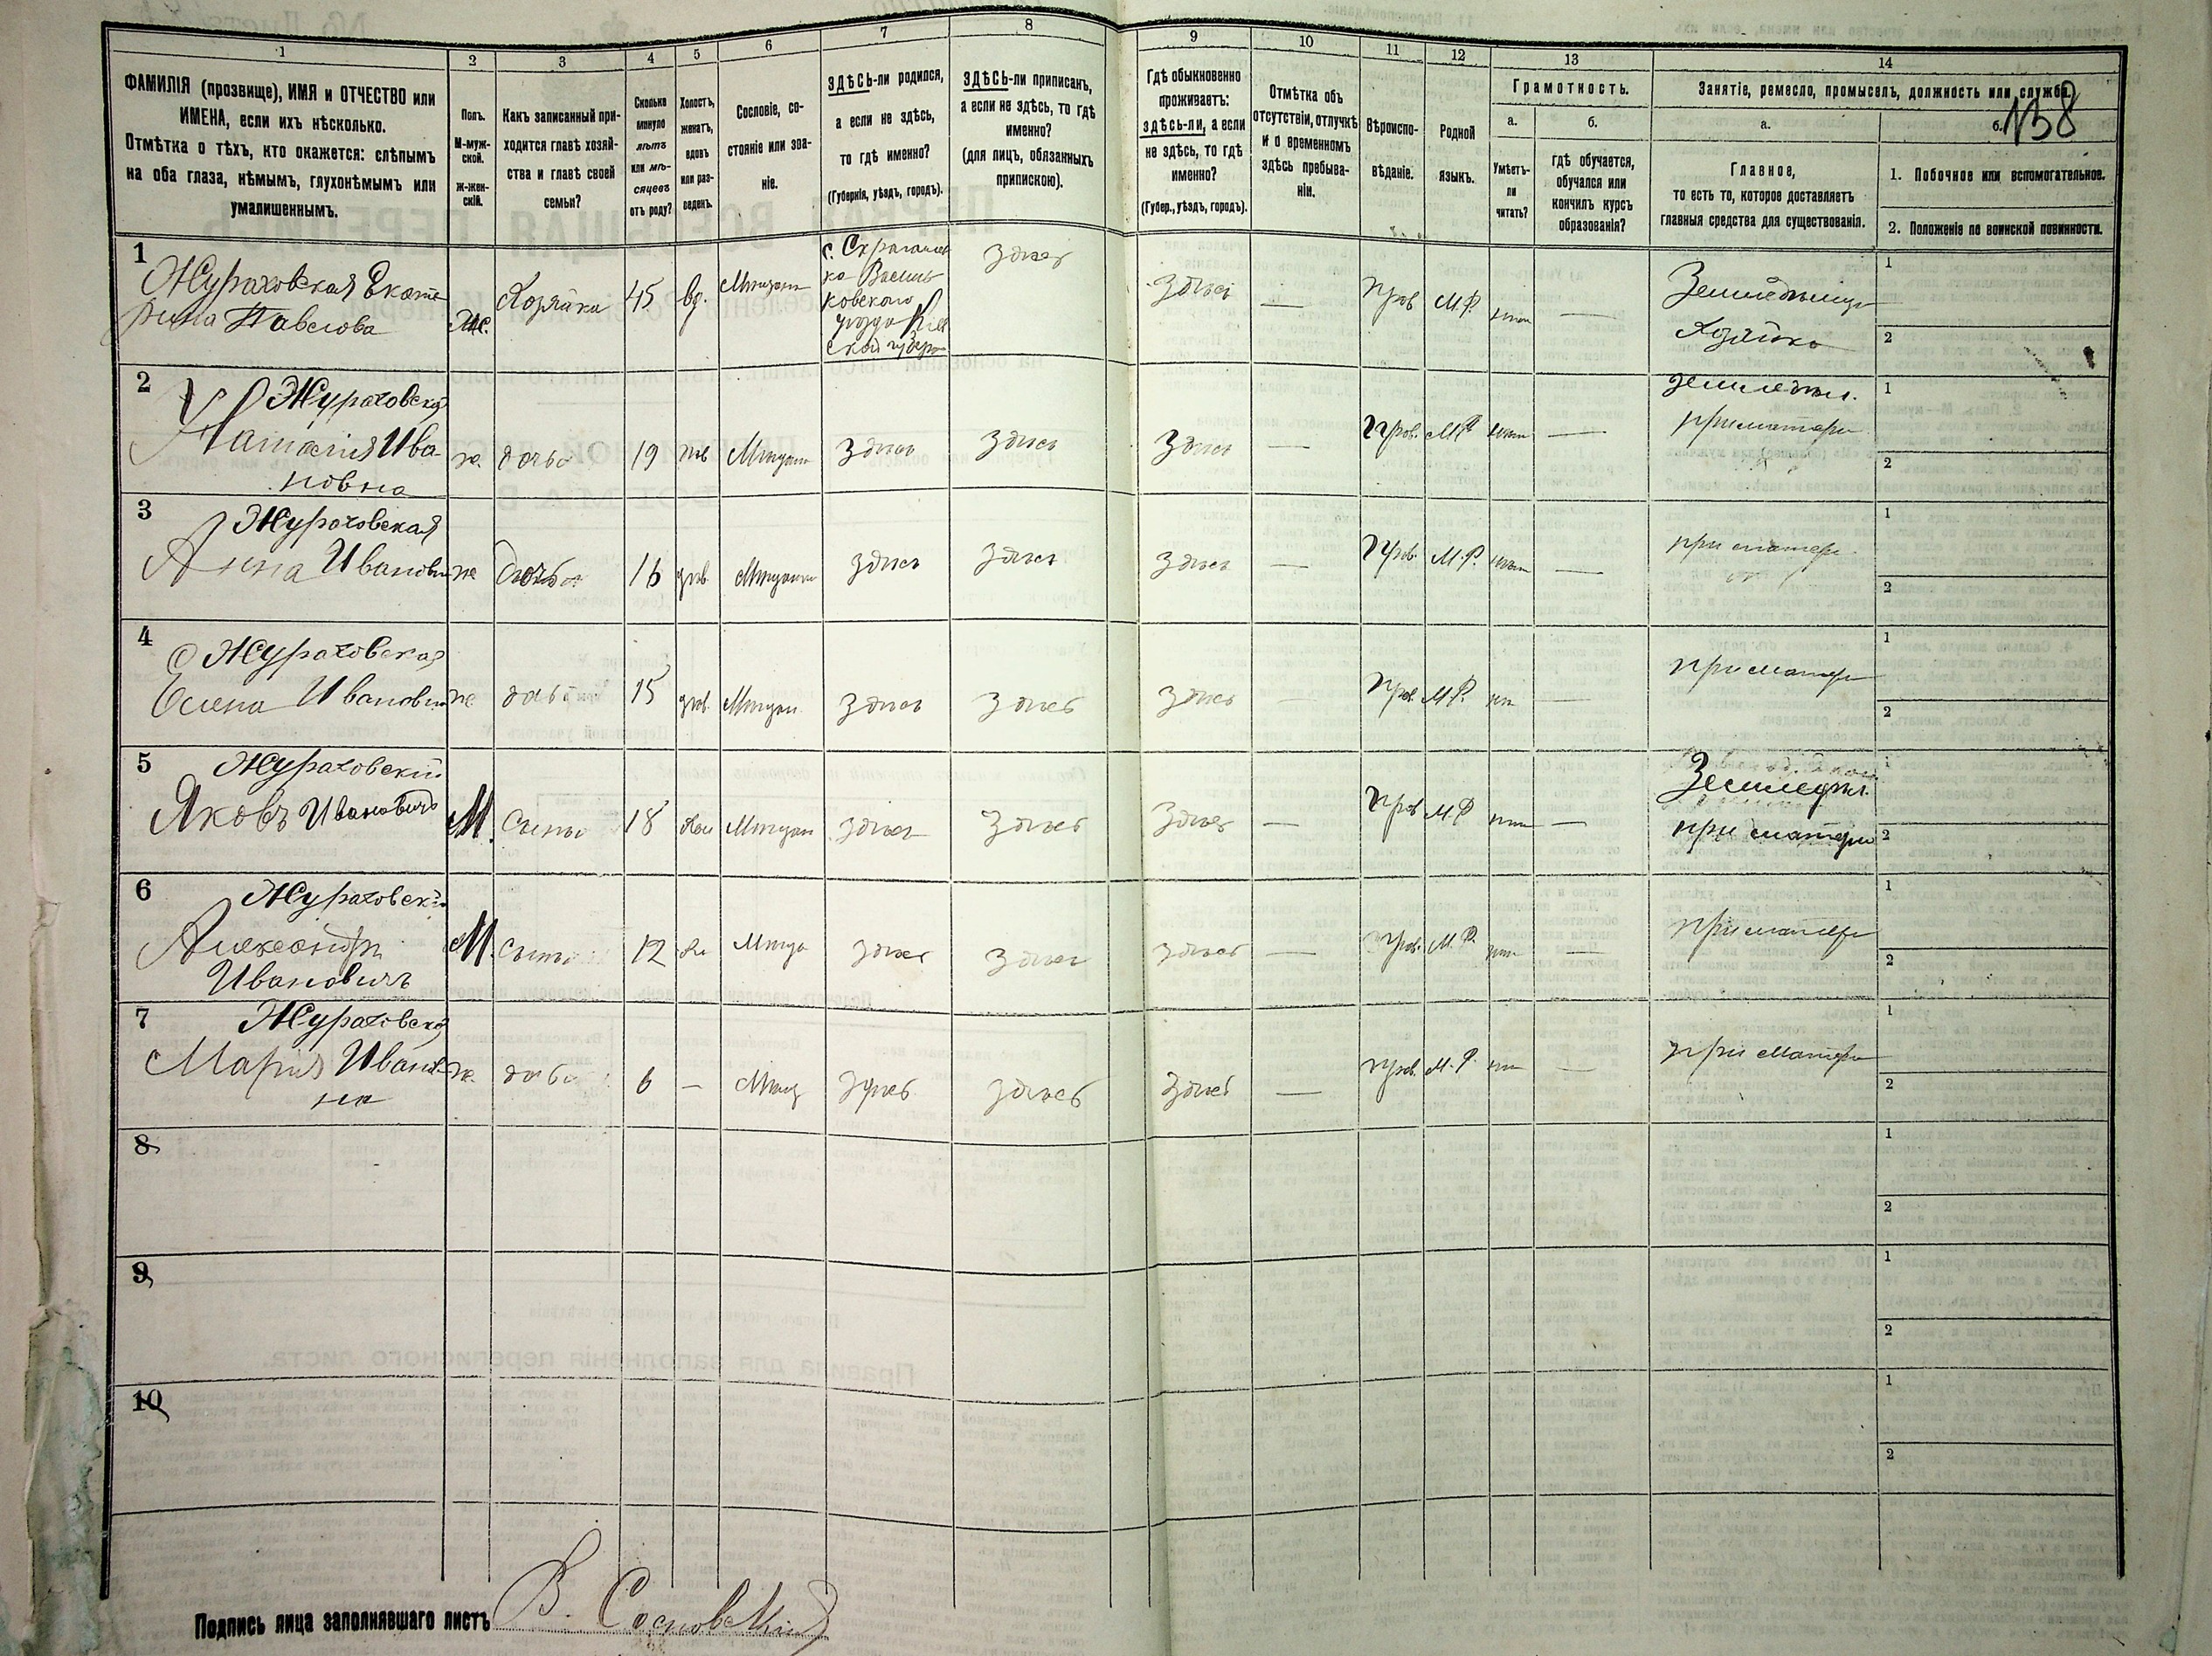 1 2 3 4 5 6 7 8 9 10 11 12 13 14
ФАМИЛІЯ (прозвище), ИМЯ и ОТЧЕСТВО или
ИМЕНА, если ихъ нѣсколько.
Отмѣтка о тѣхъ, кто окажется: слѣпымъ
на оба глаза, нѣмымъ, глухонѣмымъ или
умалишеннымъ.
Полъ.
М-муж-
ской.
ж-жен-
скій.
Какъ записанный при-
ходится главѣ хозяй-
ства и главѣ своей
семьи?
Сколько
минуло
лѣтъ
или мѣ-
сяцевъ
отъ роду?
Холостъ,
женатъ,
вдовъ
или раз-
веденъ.
Сословіе, со-
стояніе или зва-
ніе.
ЗДѢСЬ-ли родился,
а если не здѣсь,
то гдѣ именно?
(Губернія, уѣздъ, городъ).
ЗДѢСЬ-ли приписанъ,
а если не здѣсь, то гдѣ
именно?
(для лицъ, обязанныхъ
припискою).
Гдѣ обыкновенно
проживаетъ:
здѣсь-ли, а если
не здѣсь, то гдѣ
именно?
(Губер., уѣздъ, городъ).
Отмѣтка объ
отсутствіи, отлучкѣ
и о временномъ
здѣсь пребыва-
ніи.
Вѣроиспо-
вѣданіе.
Родной
языкъ.
Грамотность.
а.
Умѣетъ-
ли
читать?
б.
гдѣ обучается,
обучался или
кончилъ курсъ
образованія?
Занятіе, ремесло, промыселъ, должность или служба.
138
а.
Главное,
то есть то, которое доставляетъ
главныя средства для существованія.
б.
1. Побочное или вспомогательное.
2. Положеніе по воинской повинности.
1
Жураховская Екате
рина Павлова
Ж. Хозяйка 45 вд.
ковского
уѣзда
ской
здѣсь здѣсь — Прав М.Р. —
Хозяйка
1
2
2
Жураховская
Наталія Ива
новна
ж. дочь 19 здѣсь здѣсь здѣсь — Прав. М.Р. —
при матери
1
2
3
Жураховская
Анна Ивановна
ж дочь 16 здѣсь здѣсь здѣсь — Прав. М.Р. —
при матери
1
2
4
Жураховская
Елена Ивановна
ж. дочь 15 здѣсь здѣсь здѣсь — Прав. М.Р. —
при матери
1
2
5
Жураховскій
Яковъ Ивановичъ
М. Сынъ 18 здѣсь здѣсь здѣсь — Прав М.Р —
Земледѣл.
при матери
1
2
6
Жураховскій
Александръ
Ивановичъ
М. Сынъ 12 здѣсь здѣсь здѣсь — Прав. М.Р. —
при матери
1
2
7
Жураховская
Марія Иванов
на
ж. дочь 6 — здѣсь здѣсь здѣсь — Прав. М.Р. —
при матери
1
2
8
1
2
9
1
2
10
1
2
Подпись лица заполнявшаго листъ В. Сосновскій